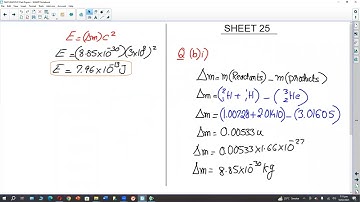 E = (Δm)c²
E = (8.85×10⁻³⁰)(3×10⁸)²
E = 7.96×10⁻¹³ J
SHEET 25
Q (b)i)
Δm = m(Reactants) - m(products)
Δm = (²₁H + ¹₁H) - (³₂He)
Δm = (1.00728 + 2.01410) - (3.01605)
Δm = 0.00533 u
Δm = 0.00533×1.66×10⁻²⁷
Δm = 8.85×10⁻³⁰ kg